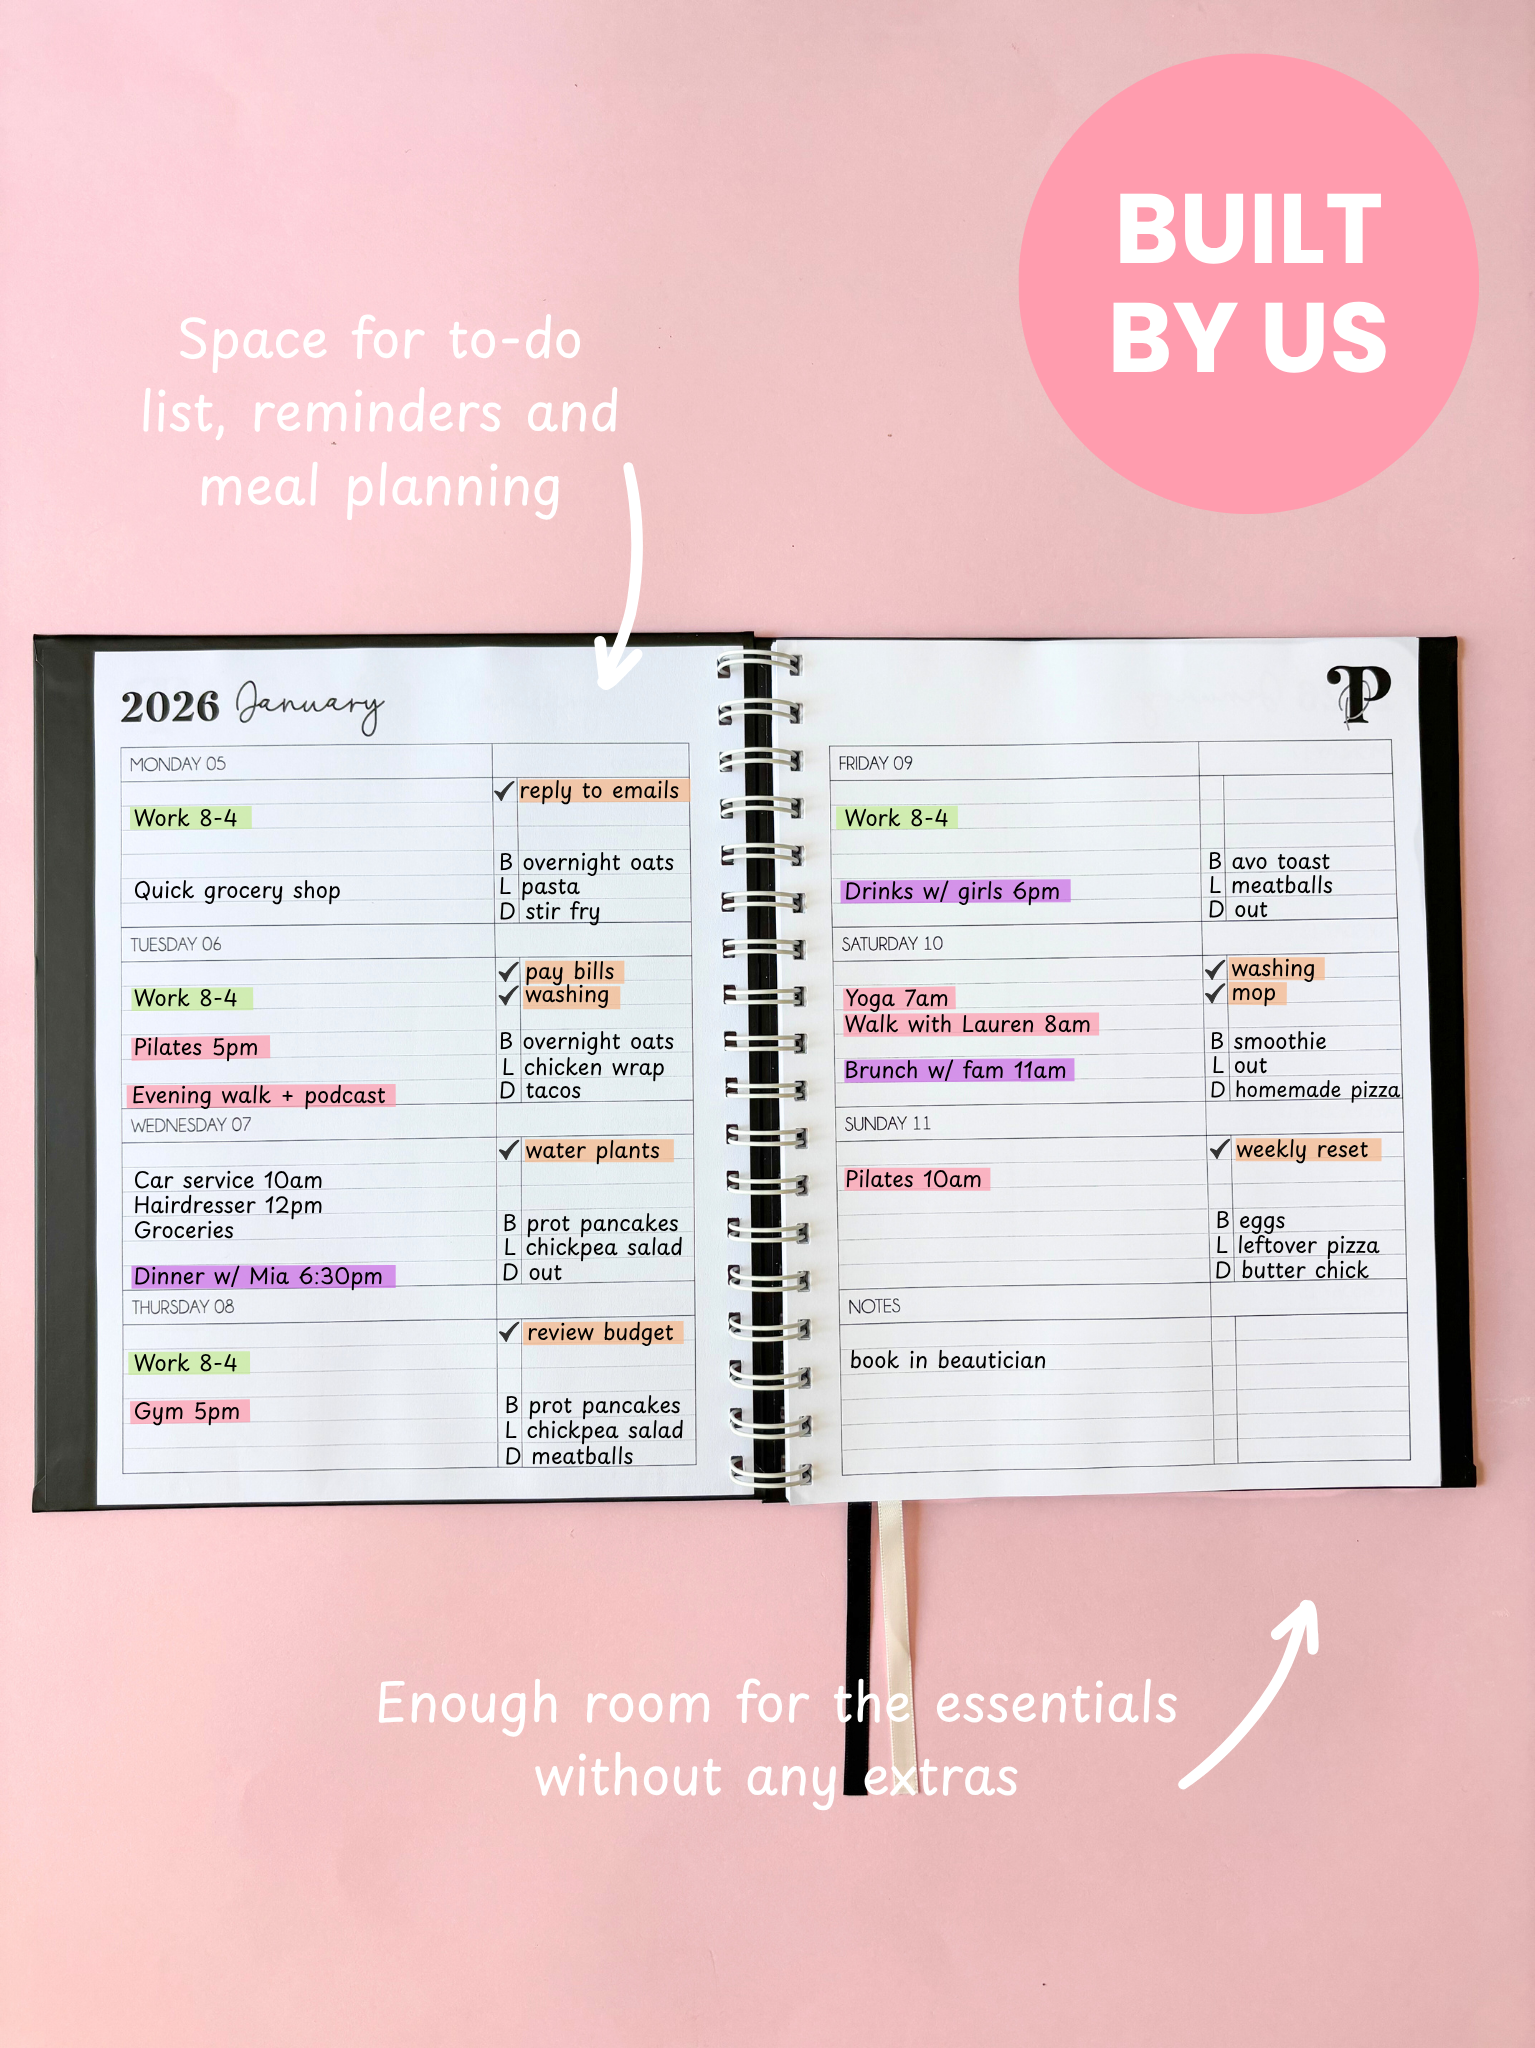 BUILT
BY US
Space for to-do
list, reminders and
meal planning
2026 January
MONDAY 05
✓ reply to emails
Work 8-4
B overnight oats
Quick grocery shop
L pasta
D stir fry
TUESDAY 06
✓ pay bills
Work 8-4
✓ washing
Pilates 5pm
B overnight oats
L chicken wrap
Evening walk + podcast
D tacos
WEDNESDAY 07
✓ water plants
Car service 10am
Hairdresser 12pm
Groceries
B prot pancakes
L chickpea salad
Dinner w/ Mia 6:30pm
D out
THURSDAY 08
✓ review budget
Work 8-4
Gym 5pm
B prot pancakes
L chickpea salad
D meatballs
P
FRIDAY 09
Work 8-4
B avo toast
Drinks w/ girls 6pm
L meatballs
D out
SATURDAY 10
✓ washing
Yoga 7am
✓ mop
Walk with Lauren 8am
B smoothie
Brunch w/ fam 11am
L out
D homemade pizza
SUNDAY 11
✓ weekly reset
Pilates 10am
B eggs
L leftover pizza
D butter chick
NOTES
book in beautician
Enough room for the essentials
without any extras